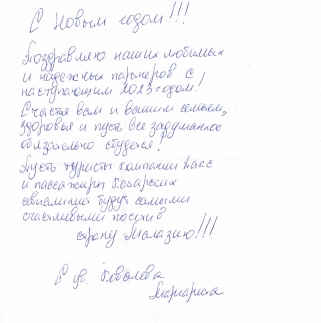 С Новым годом!!!
Поздравляю наших любимых
и надежных партнеров с
наступающим 2023 годом!
Счастья вам и вашим семьям,
здоровья и пусть все задуманное
обязательно сбудется!
Пусть туристы компании
и пассажиры Катарских
авиалиний будут самыми
счастливыми посетив
страну Малазию!!!
С ув. Ковалева
Маргарита